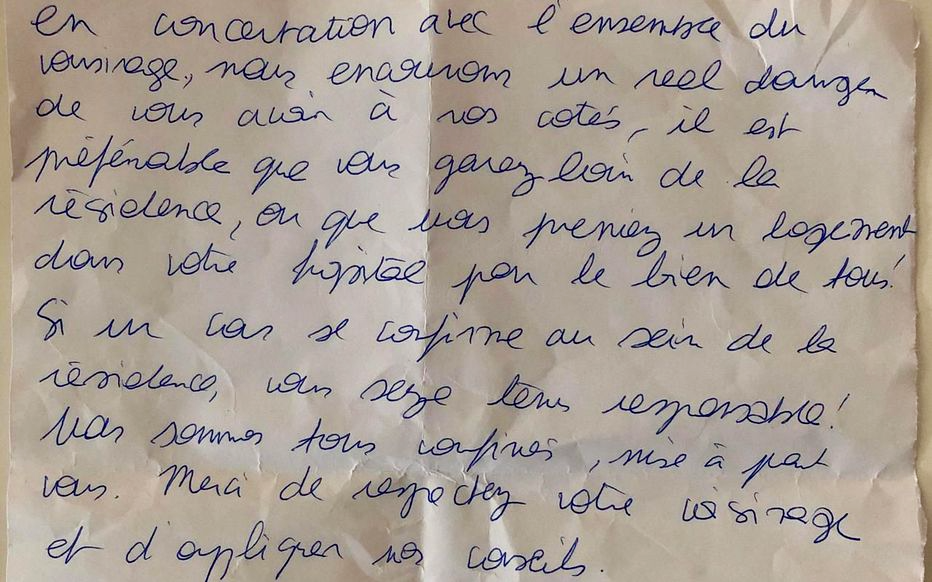 en concertation avec l'ensemble du
voisinage, nous encourons un reel danger
de vous avoir à nos cotés, il est
préférable que vous garez loin de la
résidence, ou que vous preniez un logement
dans votre hôpital pour le bien de tous!
Si un cas se confirme au sein de la
résidence, vous serze tenus responsable!
Nous sommes tous confinés, mise à part
vous. Merci de respectez votre voisinage
et d'appliquer nos conseils.